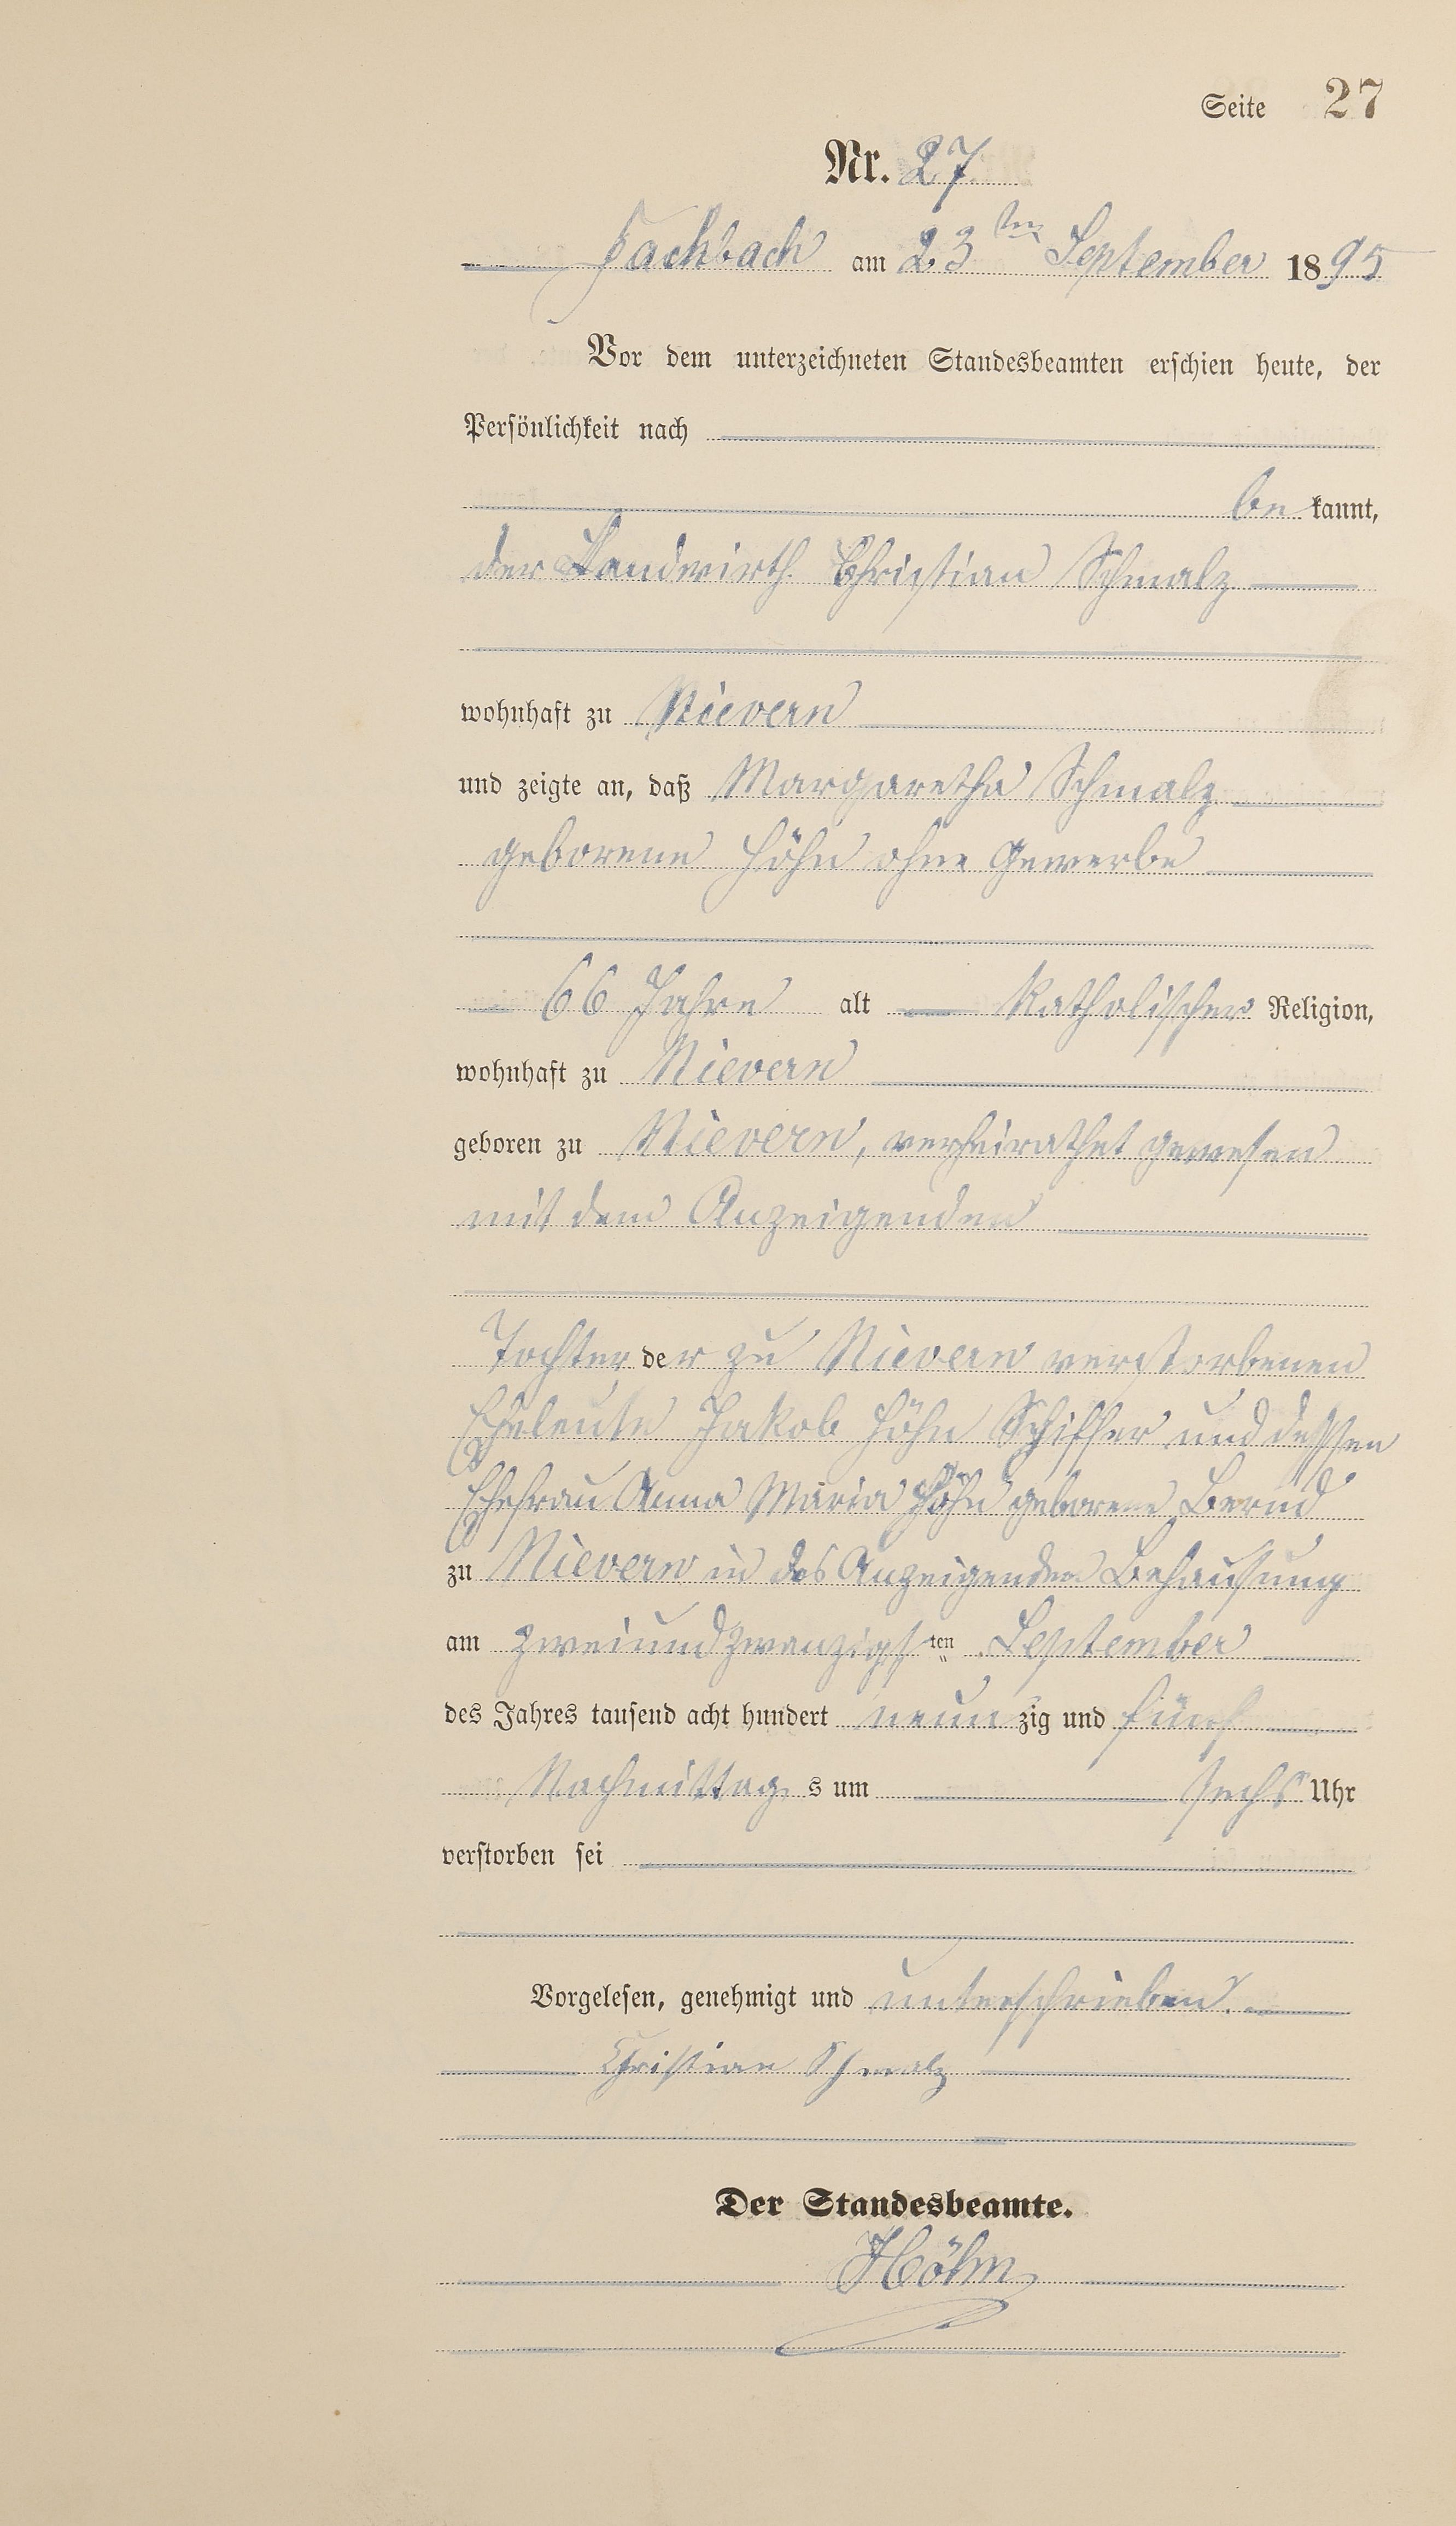 Seite 27
Nr. 27
Fachbach am 23ten September 1895
Vor dem unterzeichneten Standesbeamten erschien heute, der
Persönlichkeit nach
be kannt,
der Landwirth Christian Schmalz
wohnhaft zu Nievern
und zeigte an, daß Margaretha Schmalz
geborene Höhn ohne Gewerbe
66 Jahre alt katholischer Religion,
wohnhaft zu Nievern
geboren zu Nievern, verheirathet gewesen
mit dem Anzeigenden
Tochter der zu Nievern verstorbenen
Eheleute Jakob Höhn Schiffer und dessen
Ehefrau Anna Maria Höhn geborene Bernd
zu Nievern in des Anzeigenden Behausung
am zweiundzwanzigsten September
des Jahres tausend acht hundert neunzig und fünf
Nachmittags um sechs Uhr
verstorben sei
Vorgelesen, genehmigt und unterschrieben.
Christian Schmalz
Der Standesbeamte.
Höhn